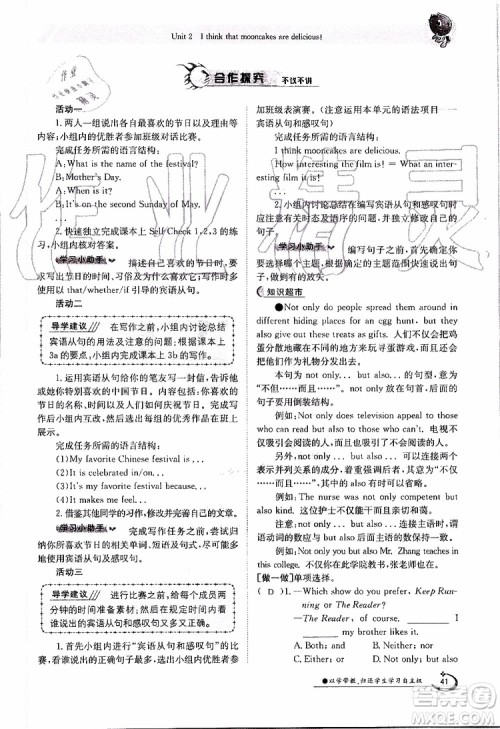 Unit 2 I think that mooncakes are delicious!
合作探究 不议不讲
活动一
1. 两人一组说出各自最喜欢的节日以及喜欢的原因,小组内的优胜者参加班级对话比赛。
完成任务所需的语言结构:
A: What is the name of the festival?
B: Mother's Day.
A: When is it?
B: It is on the second Sunday of May.
...
2. 快速独立完成课本上 Self Check 1,2,3 的练习,小组内核对答案。
学习小助手
描述自己喜欢的节日要说出节日的时间、习俗等,在复习宾语从句时可以使用 that/whether/if 引导的宾语从句。
活动二
导学建议
在写作之前,小组内讨论总结宾语从句的用法,根据提示完成课本上 3a 的要点,小组内交流写作思路。
1. 运用宾语从句给你的笔友写一封信,告诉他或她你特别喜欢的中国节日。内容包括节日的时间、人们如何庆祝以及喜欢的理由等。写作后小组内互改,选出每组的优秀作品。
完成任务所需的语言结构:
(1)My favorite Chinese festival is ...
(2)It is celebrated in/on ...
(3)...
(4)It makes me feel ...
2. 借鉴其他同学的习作,修改并完善自己的文章。
学习小助手
完成写作任务之前,尝试归纳你所喜欢的节日的相关单词、短语和句型,并运用到你的写作中。
活动三
导学建议
进行比赛之前,给每个成员两分钟的时间准备素材;小组内比一比,看谁说出的宾语从句和感叹句又多又正确。
1. 首先小组内进行“宾语从句和感叹句大比拼”,看谁说出的正确句子最多,然后选出优胜者参加班级表演赛。(注意运用本单元的语法项目——宾语从句和感叹句)
完成任务所需的语言结构:
I think mooncakes are delicious.
How interesting the film is! = What an interesting film it is!
...
2. 小组内讨论总结使用宾语从句和感叹句时应注意的问题,整理在作业本上。
学习小助手
编写句子之前,首先确定句子的主题,围绕相关的主题范围使用感叹句、宾语从句,做到有的放矢。
知识超市
●Not only do people spread them around in different hiding places for an egg hunt, but they also give out these treats as gifts. 人们不只是把这些鸡蛋分散藏在不同的地方来玩寻蛋游戏,他们还把它们作为礼物分发。
(1)当放在句首时,not only 后的分句要用倒装句子。
例如:Not only does television appeal to those who can read but also to those who can't. 电视不仅吸引了能阅读的人,而且也吸引了不能阅读的人。
(2)not only ... but also ... 可以连接两个相同的成分,并列宾语、并列谓语、并列表语等。意为“不但……,而且……”。
例如:The nurse was not only competent but also kind. 这位护士不仅能干而且心肠好。
注意:not only ... but also ... 连接两个主语时,谓语动词的数应与后面的主语的数保持一致。
例如:Not only you but also Mr. Zhang teaches in this college. 你不但在此学院教书,张老师也在。
[做一做]单项选择。
( D )1. —Which show do you prefer, Keep Running or The Reader?
—The Reader, of course. ____ I ____ my brother likes it.
A. Both; and B. Neither; nor
C. Either; or D. Not only; but also
●以学带教,归还学生学习自主权
41